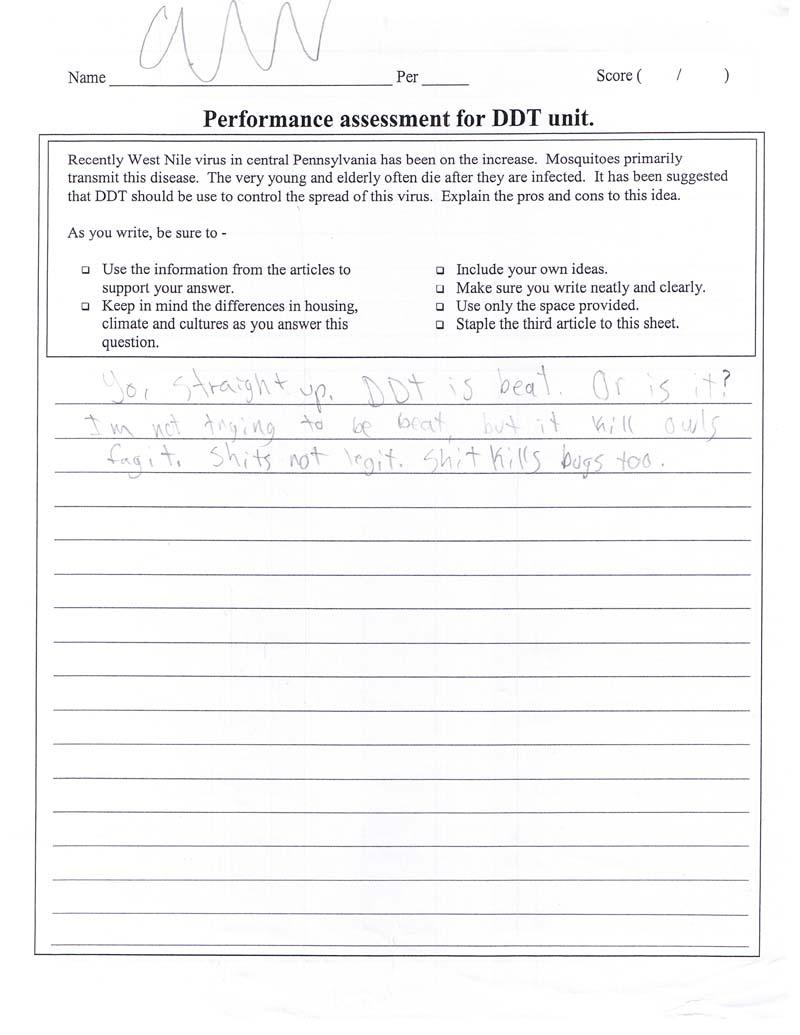 Name Per Score ( / )
Performance assessment for DDT unit.
Recently West Nile virus in central Pennsylvania has been on the increase. Mosquitoes primarily
transmit this disease. The very young and elderly often die after they are infected. It has been suggested
that DDT should be use to control the spread of this virus. Explain the pros and cons to this idea.
As you write, be sure to -
Use the information from the articles to
support your answer.
Keep in mind the differences in housing,
climate and cultures as you answer this
question.
Include your own ideas.
Make sure you write neatly and clearly.
Use only the space provided.
Staple the third article to this sheet.
Yo, straight up. DDT is beat. Or is it?
I'm not trying to be beat, but it kill owls
fagit. Shits not legit. Shit kills bugs too.